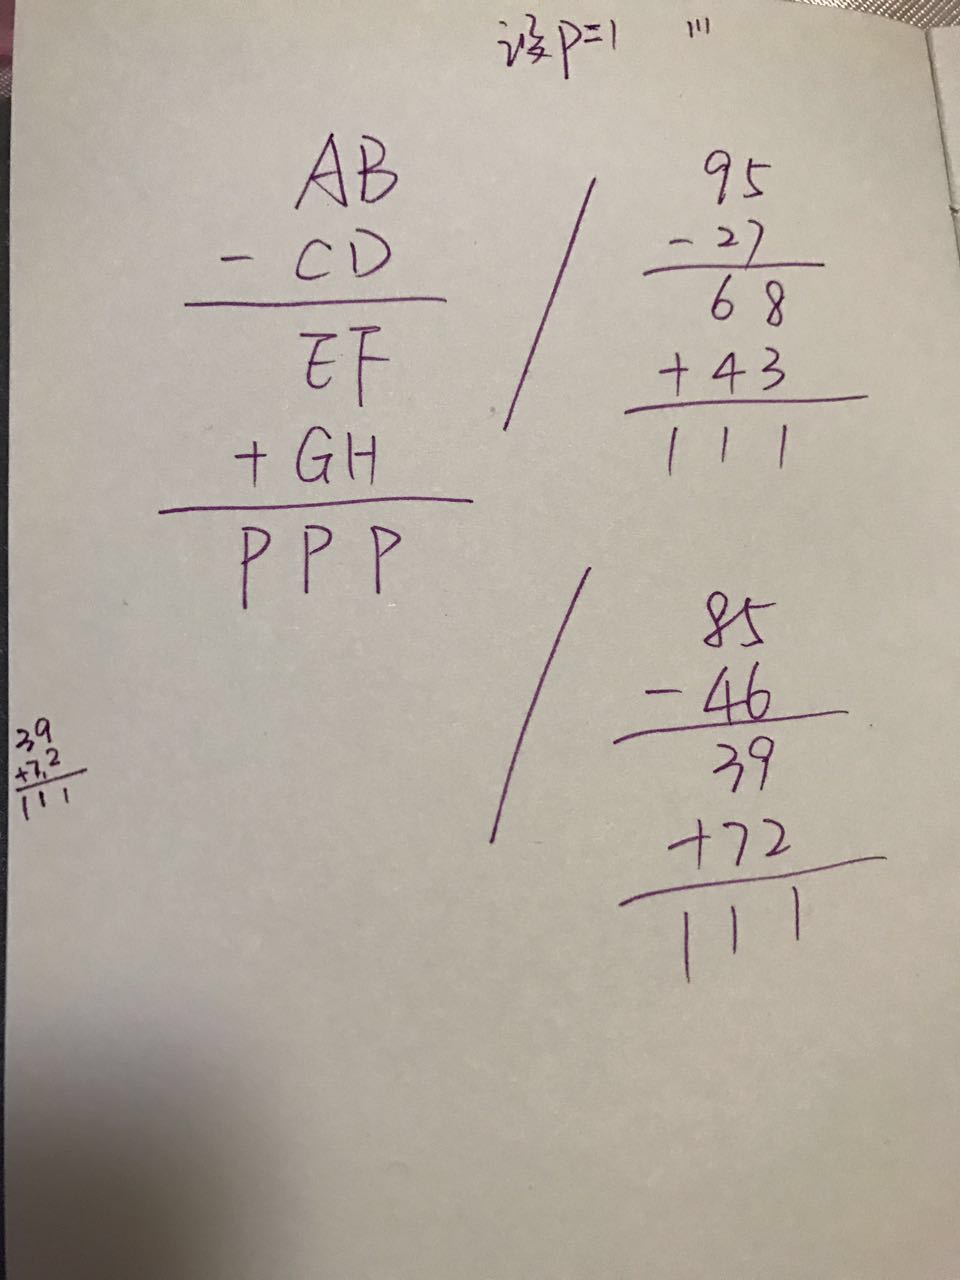 设P=1 111
AB
- CD
EF
+ GH
P P P
95
- 27
68
+ 43
1 1 1
85
- 46
39
+72
1 1 1
39
+72
1 1 1